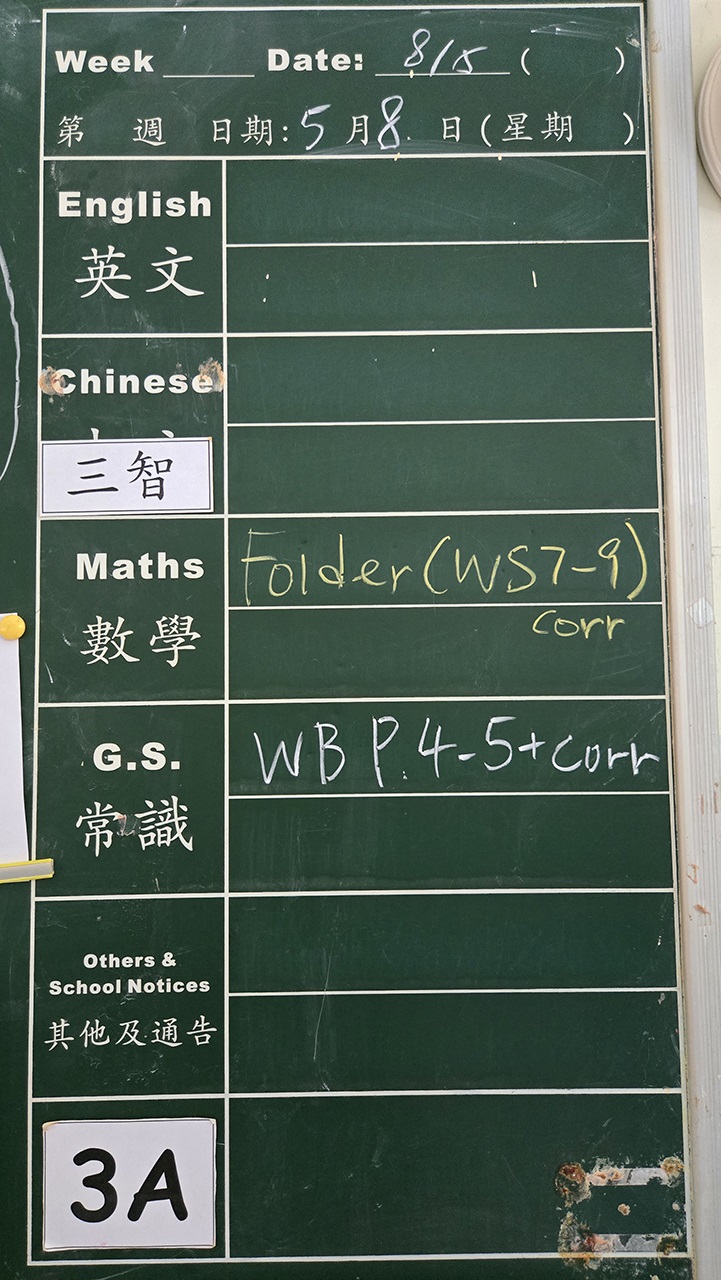 Week ____ Date: 8/5 ( )
第 週 日期: 5 月 8 日 (星期 )
English
英文
Chinese
三智
Maths
Folder (WS7-9)
數學
corr
G.S.
WB P.4-5+corr
常識
Others &
School Notices
其他及通告
3A